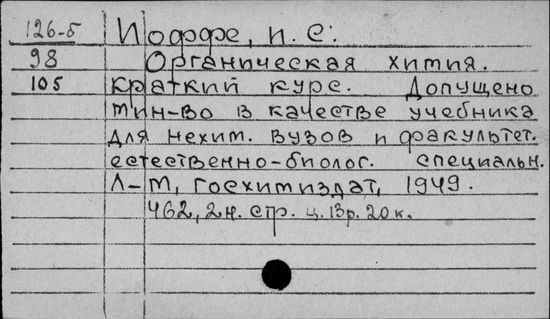 126-б Иоффе, И. С.
98 Органическая химия.
105 Краткий курс. Допущено
мин-во в качестве учебника
для нехим. вузов и факультет.
естественно-биолог. специальн.
Л-М, Госхимиздат, 1949.
462, 2 н. стр. ц. 13 р. 20 к.